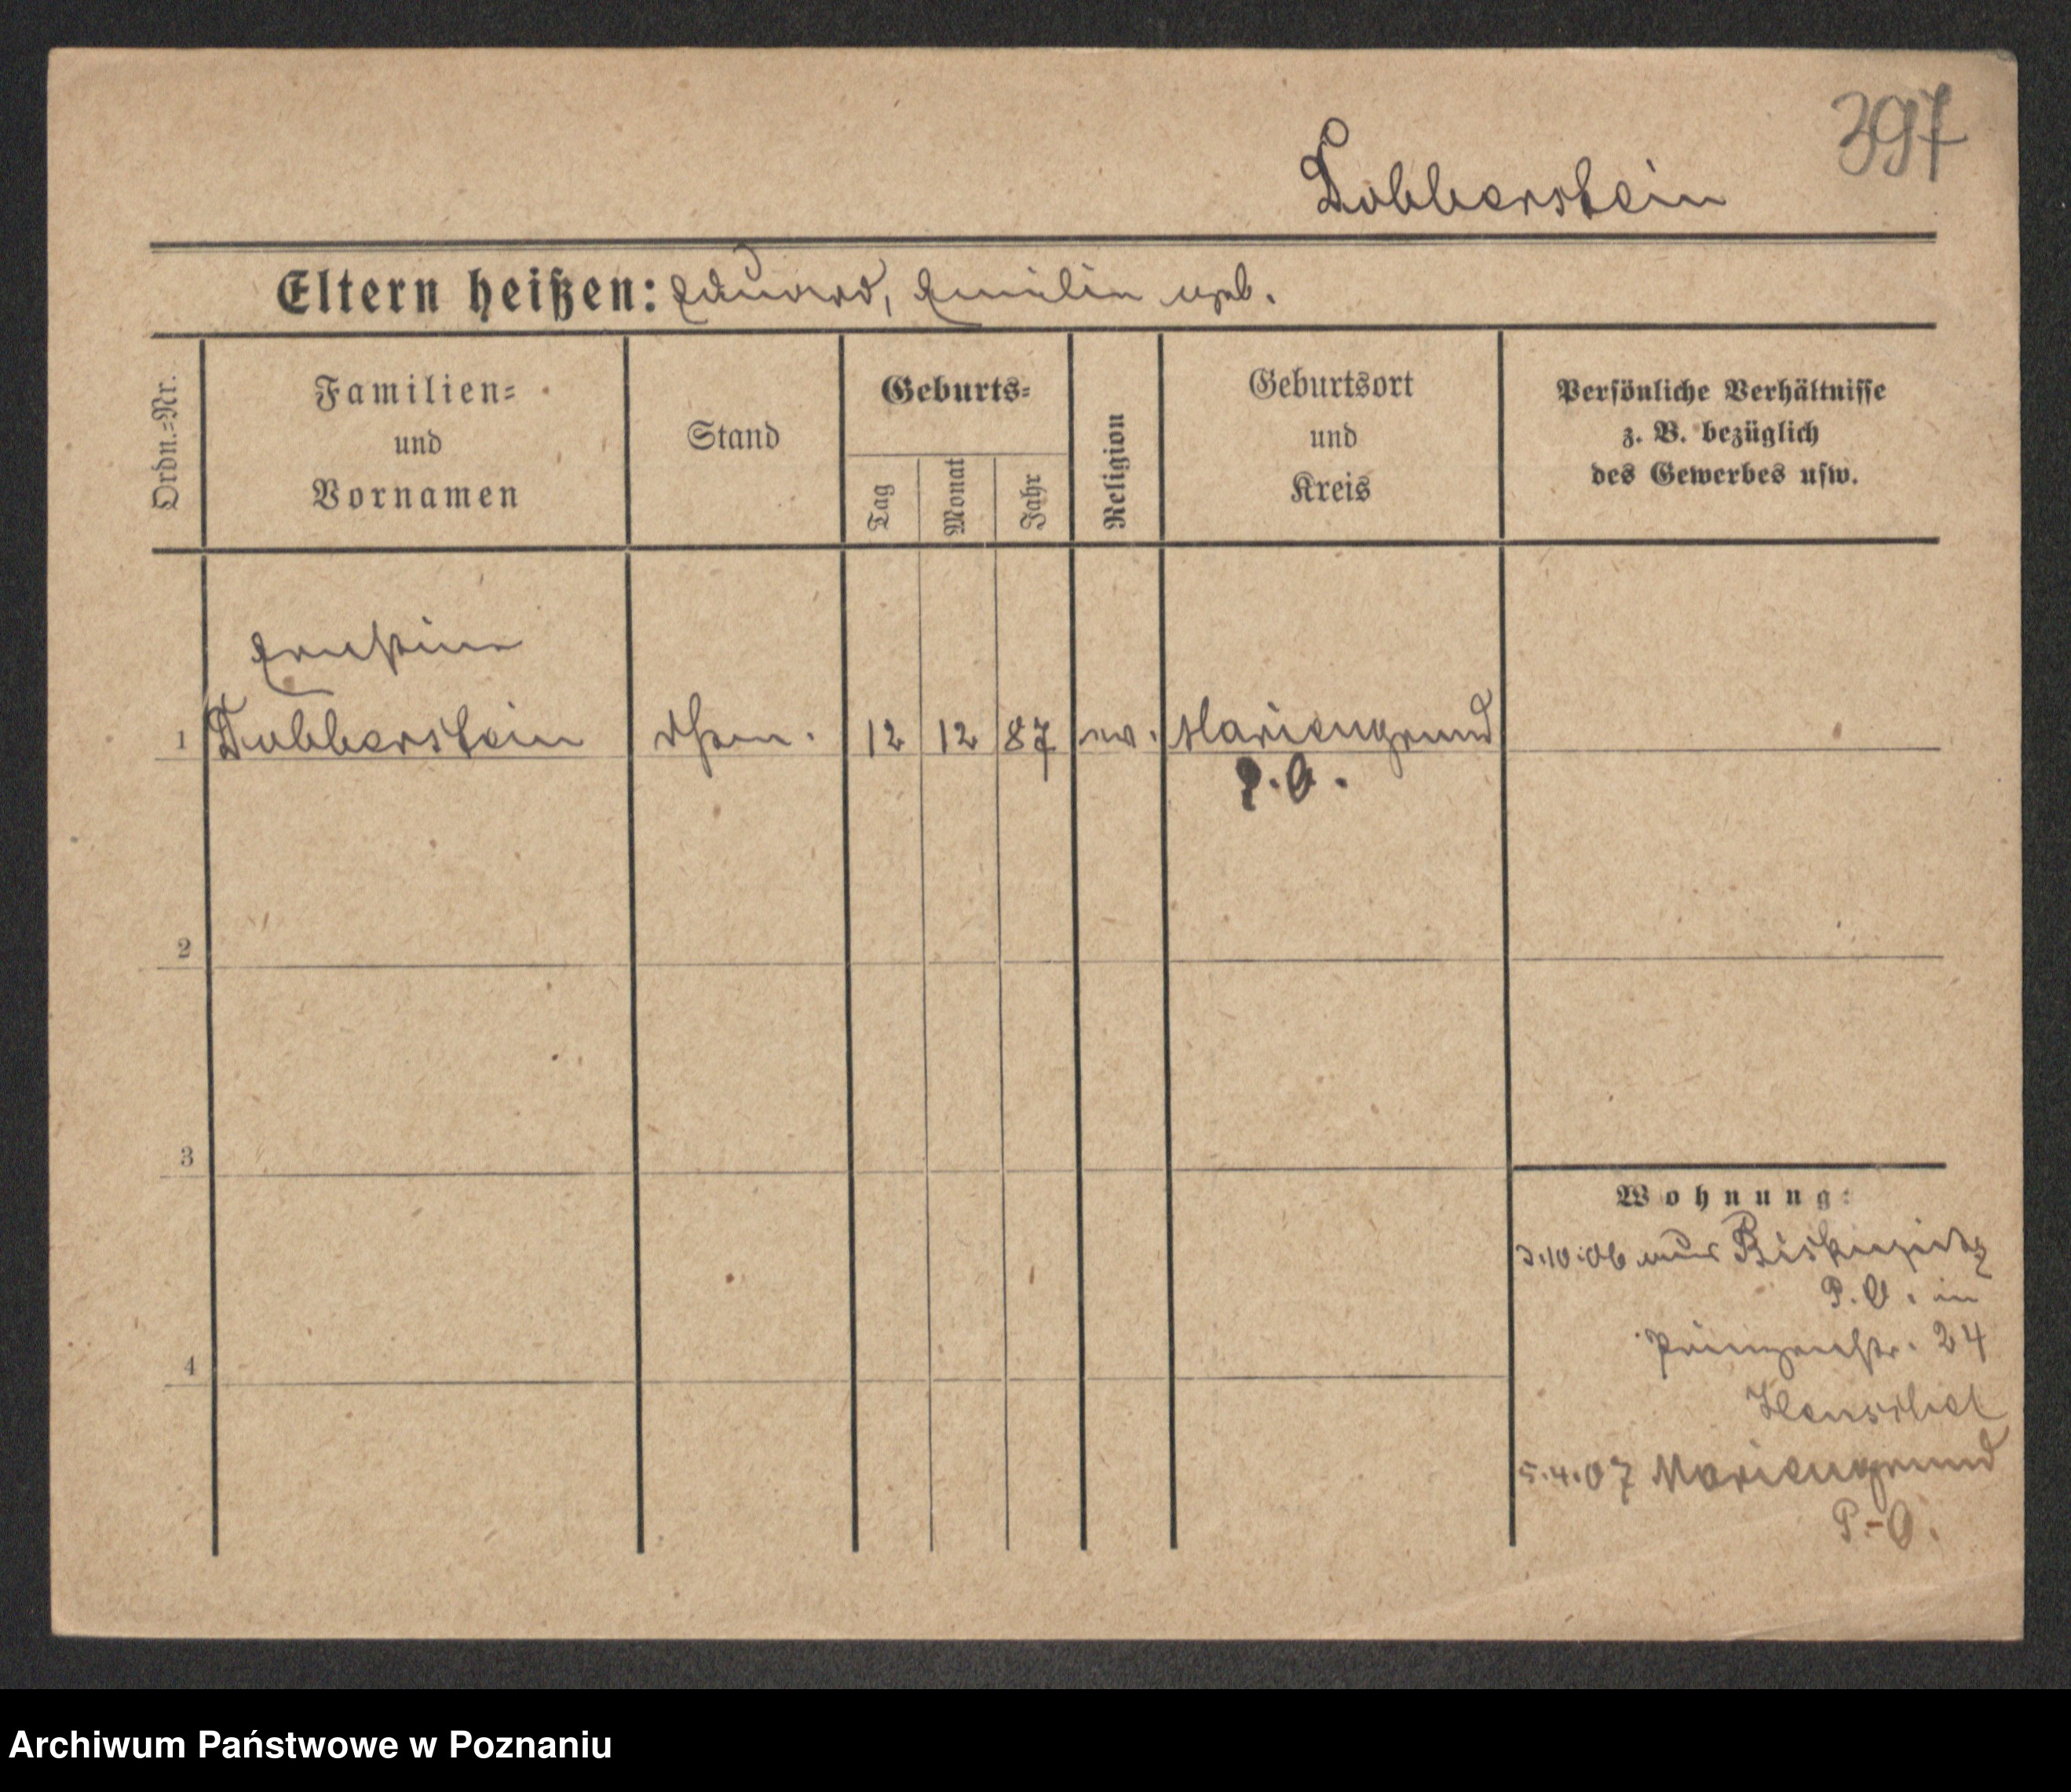 397
Dobberstein
Eltern heißen: Eduard, Emilie geb.
Ordn.=Nr.
Familien=
und
Vornamen
Stand
Geburts=
Tag
Monat
Jahr
Religion
Geburtsort
und
Kreis
Persönliche Verhältnisse
z. B. bezüglich
des Gewerbes usw.
Ernstine
1 Dobberstein 12 12 87 ev. Mariengrund
P.O.
2
3
4
Wohnung:
3.10.06 aus
P.O. in
24
Henschel
5.4.07 Mariengrund
P.-O.
Archiwum Państwowe w Poznaniu